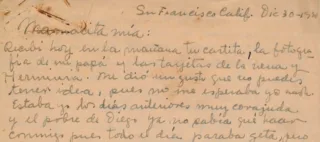 Sn Francisco Calif. Dic 30-
Mamacita mia:
Recibi hoy en la mañana tu cartita, la fotogra
fia de mi papá y las tarjetas de la nena y
Herminia. Me dió un gusto que no puedes
tener idea, pues no me esperaba yo
Estaba yo los dias anteriores muy corajuda
y el pobre de Diego ya no sabia qué hacer
conmigo pues todo el dia paraba geta, pero